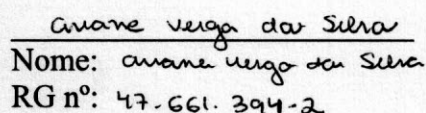 ariane verga da Silva
Nome: ariane verga da Silva
RG nº: 47.661.394-2